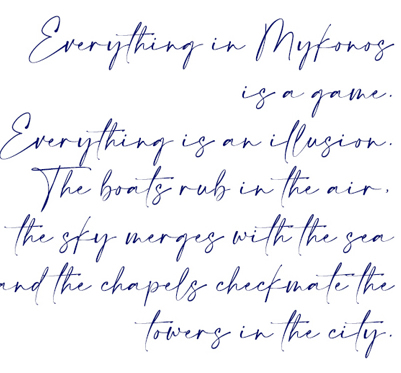 Everything in Mykonos
is a game.
Everything is an illusion.
The boats rub in the air,
the sky merges with the sea
and the chapels checkmate the
towers in the city.